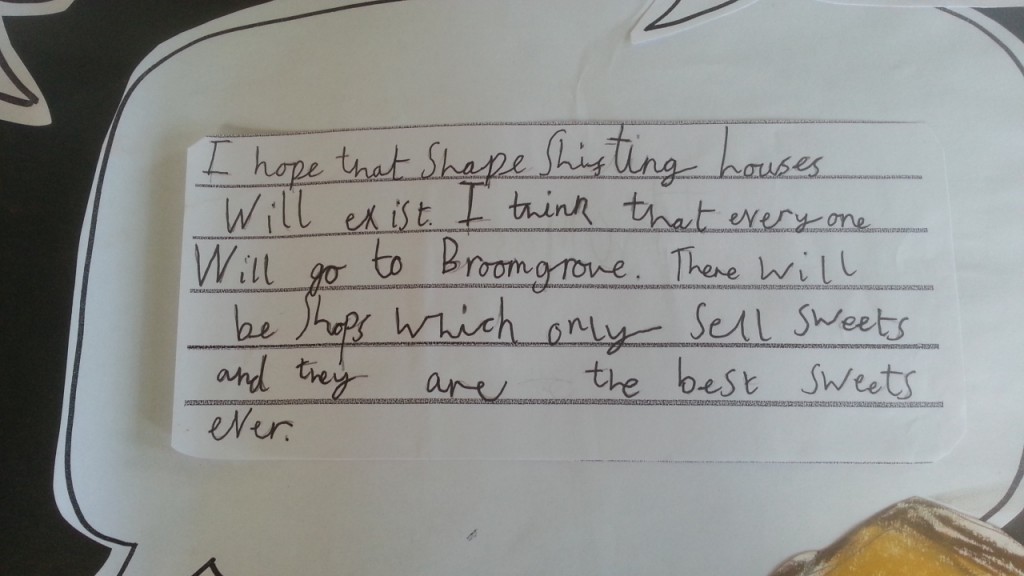 I hope that Shape Shifting houses
Will exist. I think that everyone
Will go to Broomgrove. There will
be Shops which only sell sweets
and they are the best sweets
ever.